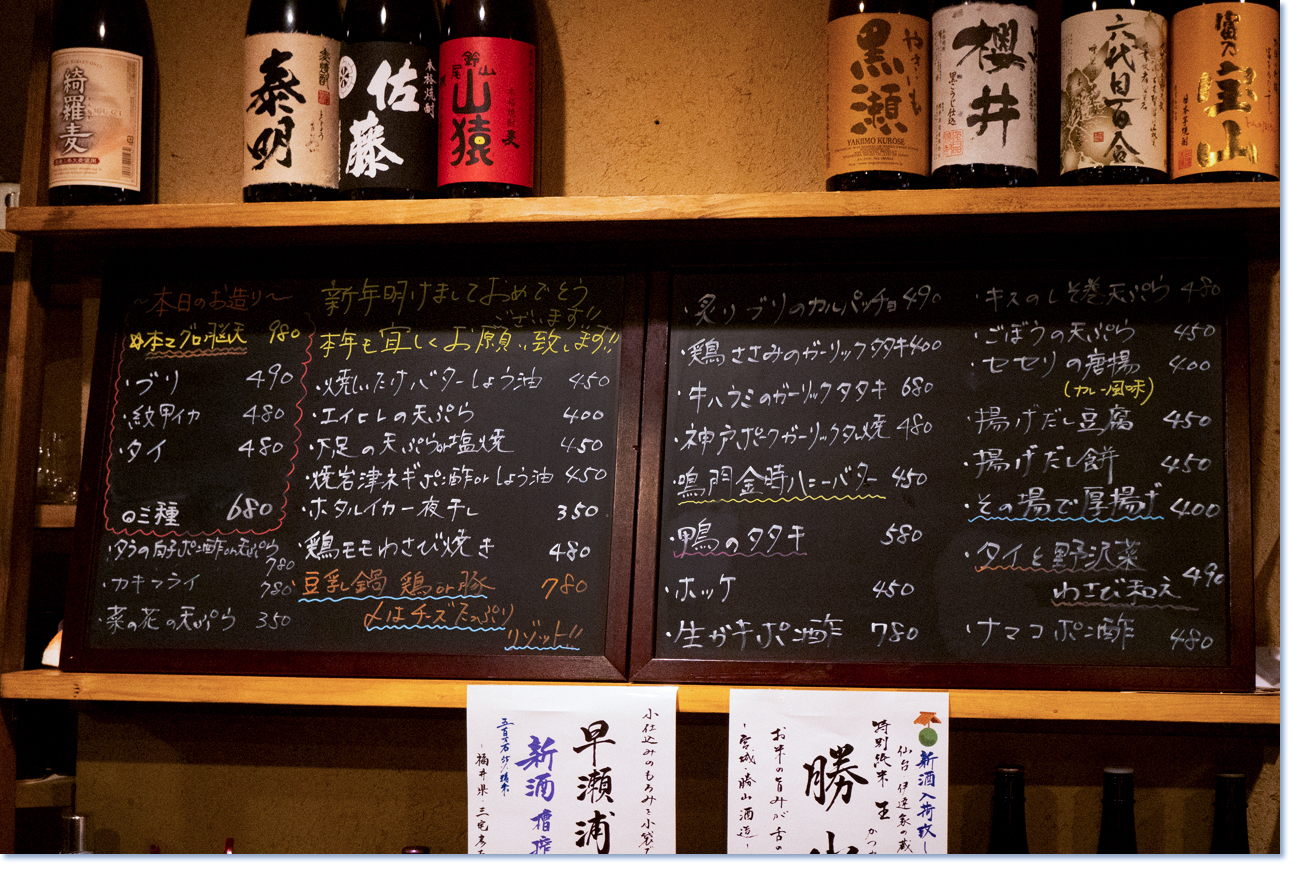 綺羅麦
泰明
佐藤
本格焼酎
山猿
麦
やきいも
黒瀬
YAKIIMO KUROSE
櫻井
黒こうじ仕込
六代目百合
富乃
宝山
～本日のお造り～
本マグロ脳天 980
・ブリ 490
・紋甲イカ 480
・タイ 480
三種 680
・タラの白子ポン酢or天ぷら
780
・カキフライ 780
・菜の花の天ぷら 350
新年明けましておめでとう
ございます!!
本年も宜しくお願い致します!!
・焼しいたけバターしょう油 450
・エイヒレの天ぷら 400
・下足の天ぷらor塩焼 450
・焼岩津ネギポン酢orしょう油 450
・ホタルイカ一夜干し 350
・鶏モモわさび焼き 480
豆乳鍋 鶏or豚 780
〆はチーズたっぷり
リゾット!!
・炙りブリのカルパッチョ 490
・鶏ささみのガーリックタタキ 400
・牛ハラミのガーリックタタキ 680
・神戸ポークガーリックタレ焼 480
・鳴門金時ハニーバター 450
・鴨のタタキ 580
・ホッケ 450
・生ガキポン酢 780
・キスのしそ巻天ぷら 480
・ごぼうの天ぷら 450
・セセリの唐揚 400
(カレー風味)
・揚げだし豆腐 450
・揚げだし餅 450
・その場で厚揚げ 400
・タイと野沢菜
わさび和え 490
・ナマコポン酢 480
小仕込みのもろみを小袋で
早瀬浦
新酒槽搾
-福井県・三宅彦
新酒入荷致し
仙台 伊達家の蔵
特別純米 王
勝山
お米の旨みが舌の
-宮城 勝山酒造-